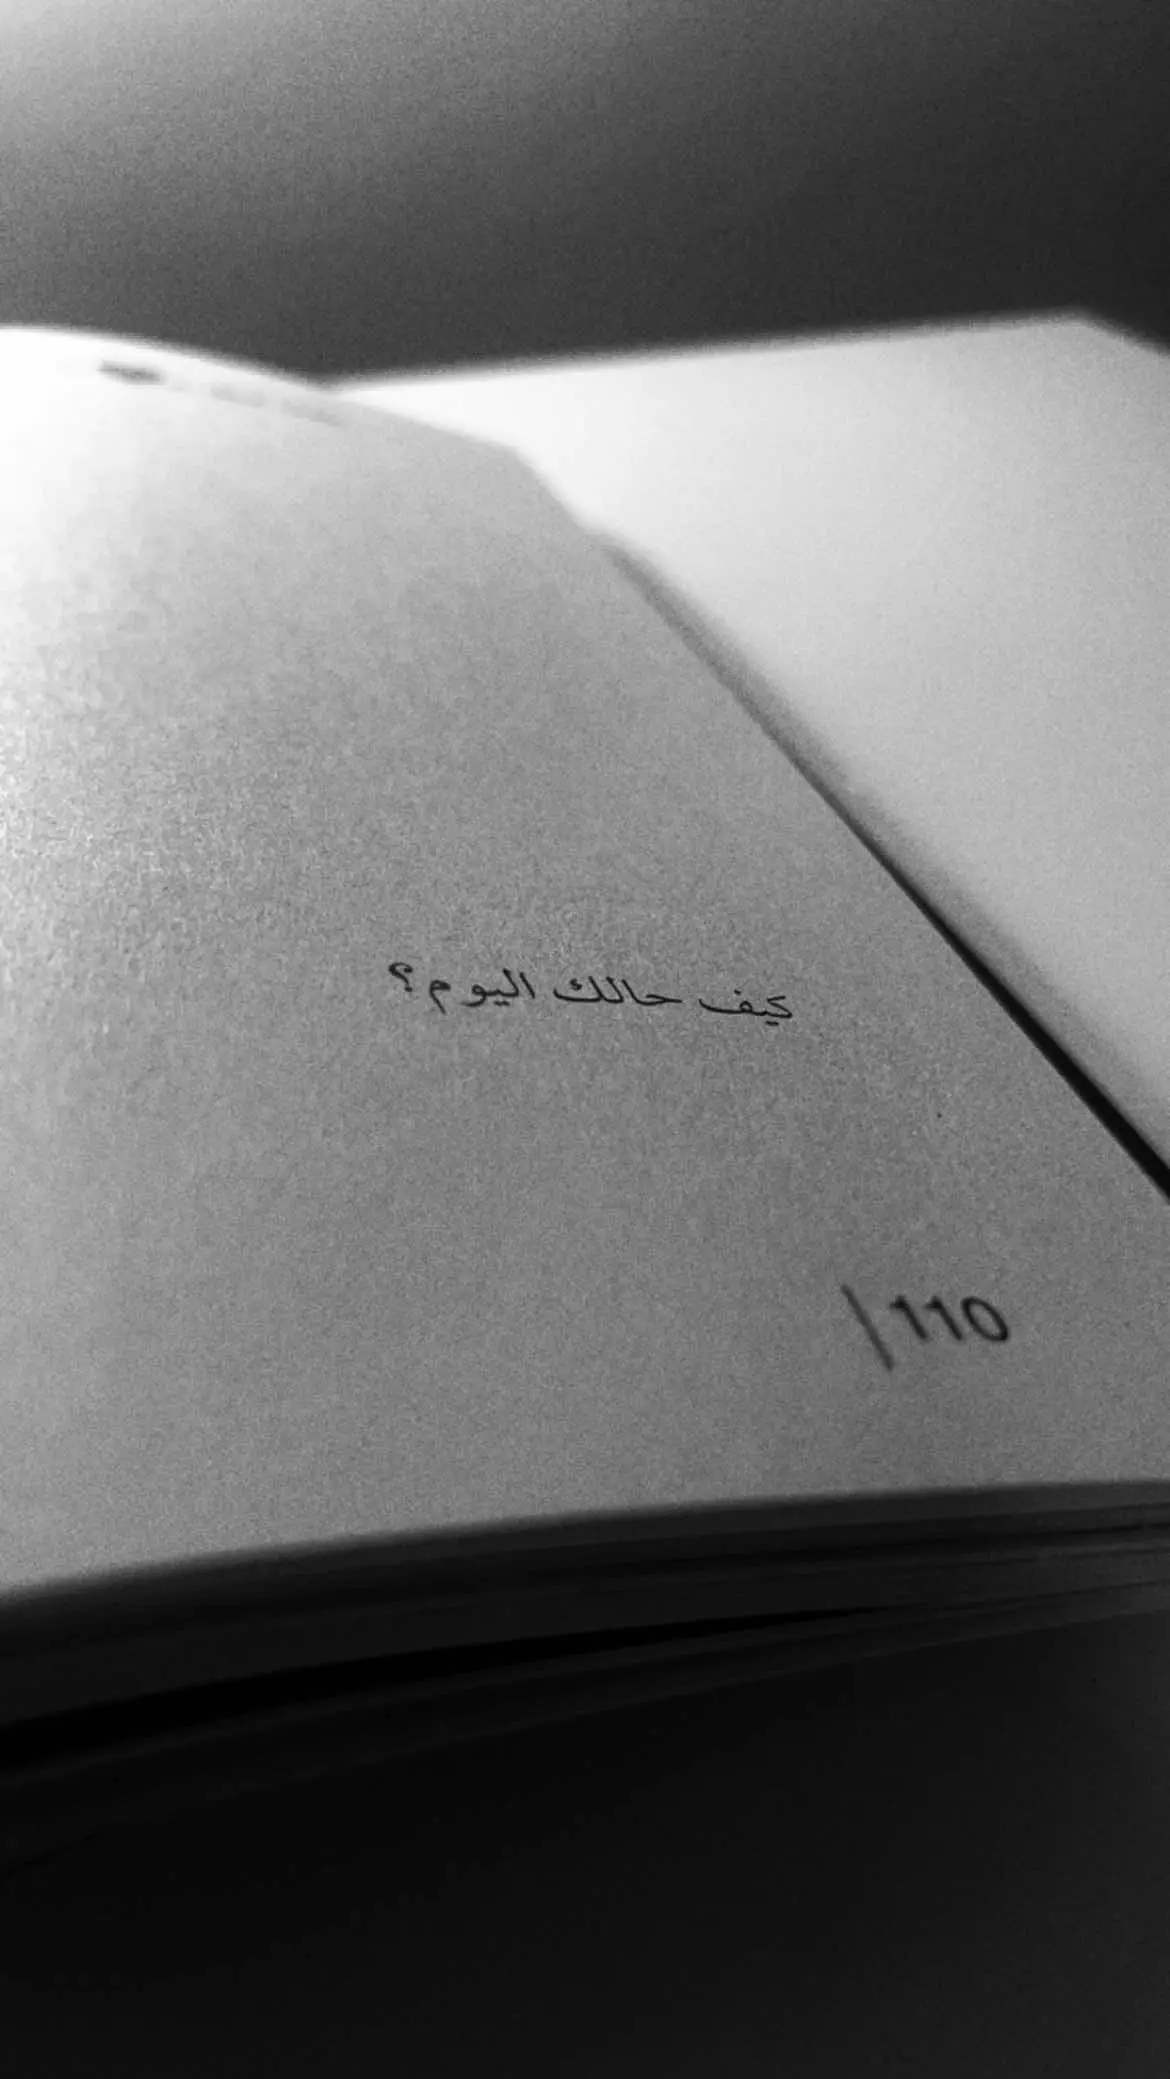 كيف حالك اليوم؟
|110